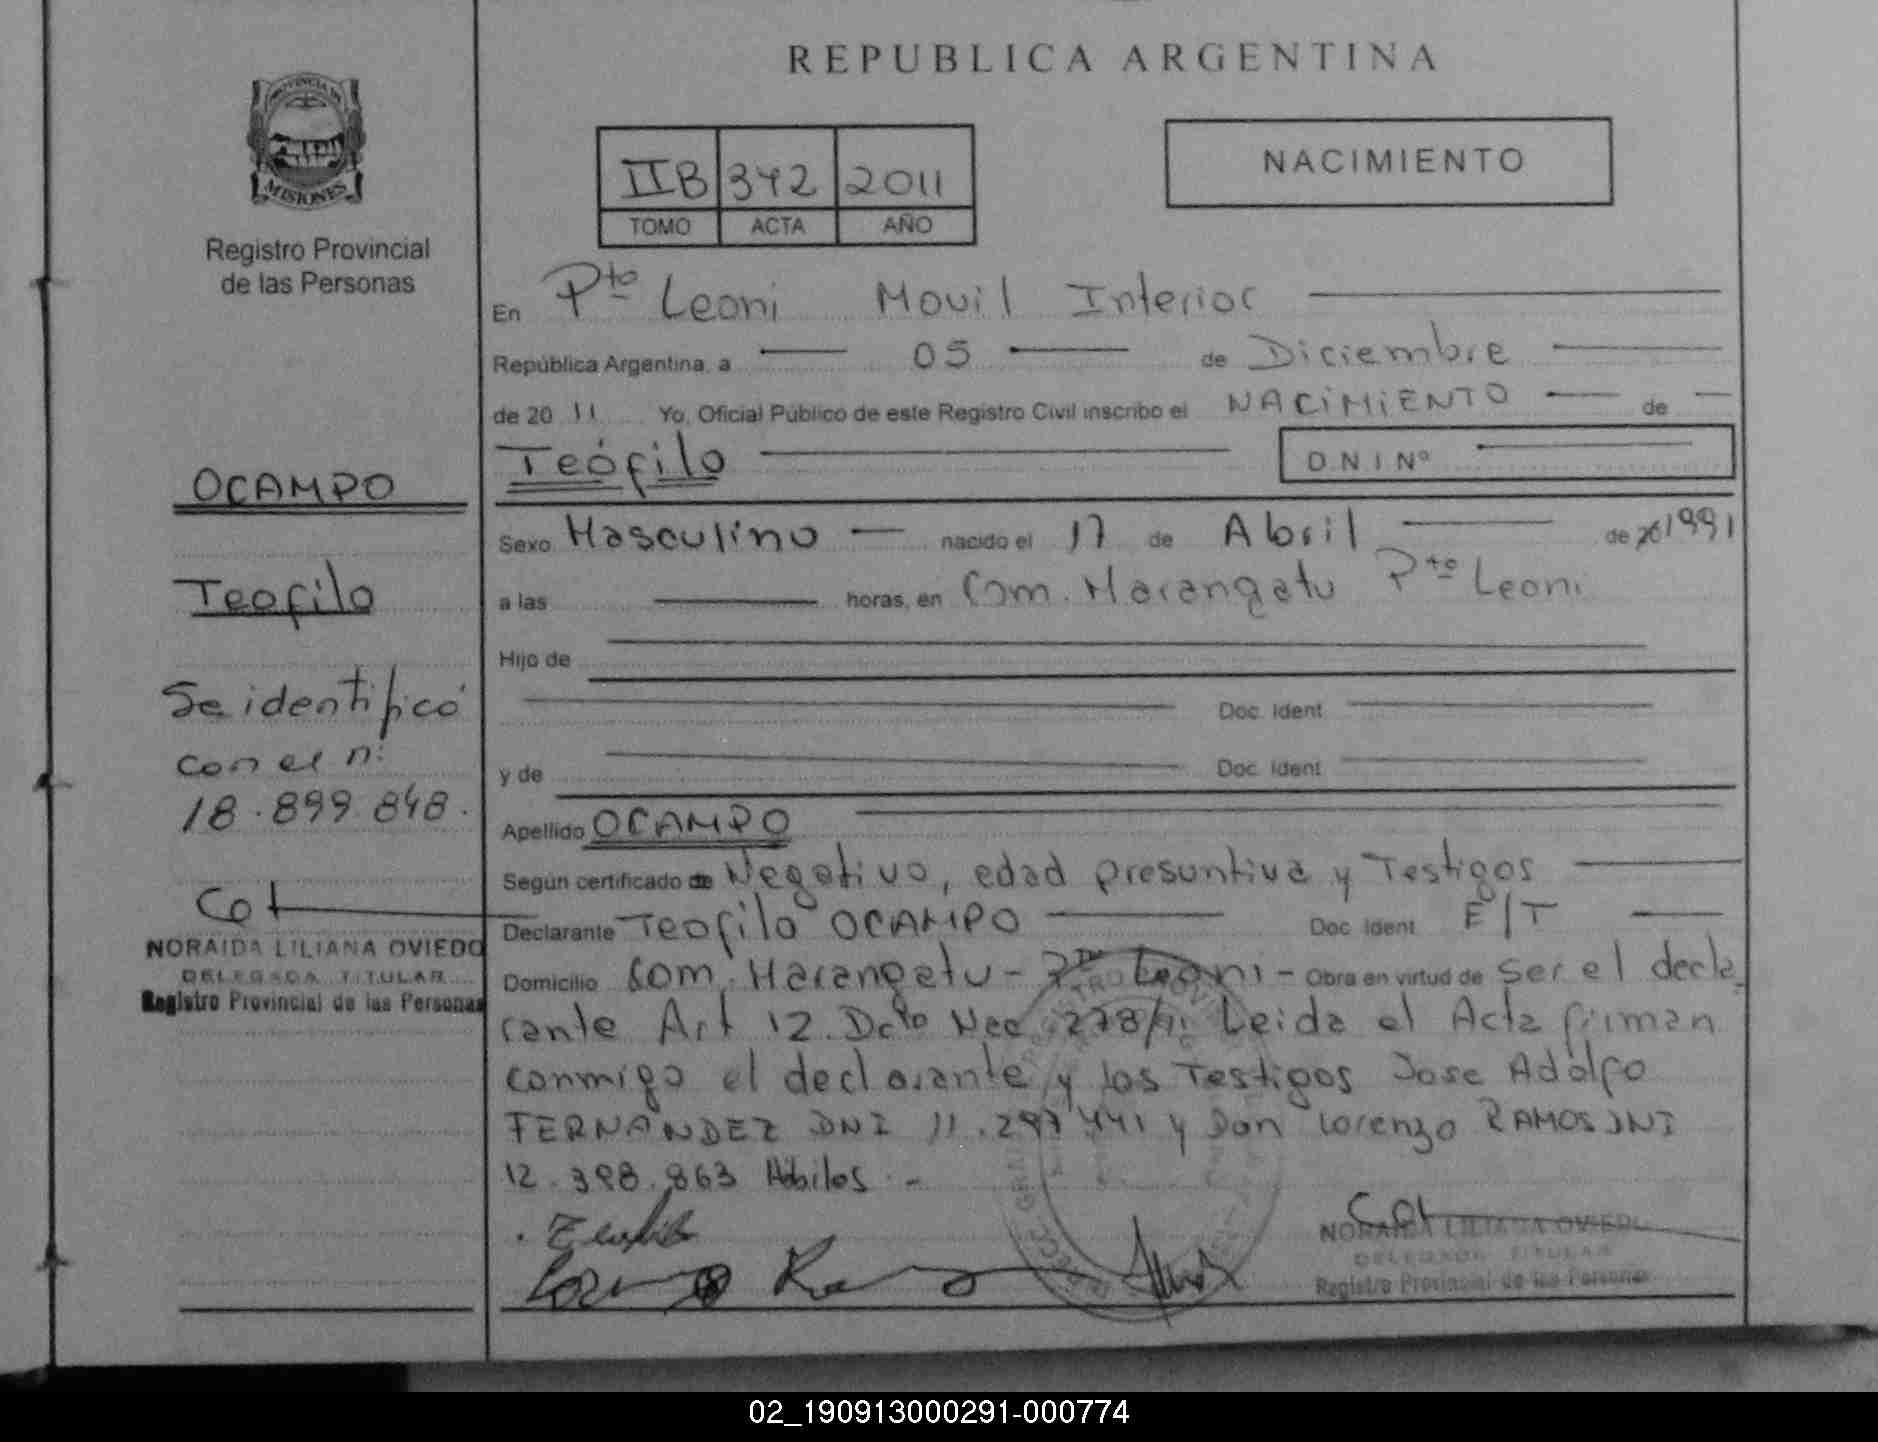 PROVINCIA DE
MISIONES
Registro Provincial
de las Personas
OCAMPO
Teofilo
Se identificó
con el n:
18.899.848.
NORAIDA LILIANA OVIEDO
DELEGADA TITULAR
Registro Provincial de las Personas
REPUBLICA ARGENTINA
IIB 342 2011
TOMO ACTA AÑO
NACIMIENTO
En Pto Leoni Movil Interior
República Argentina, a 05 de Diciembre
de 20 11 Yo, Oficial Público de este Registro Civil inscribo el NACIMIENTO de
Teófilo D N I Nº
Sexo Masculino nacido el 17 de Abril de 1991
a las horas, en Com. Marangatu Pto Leoni
Hijo de
Doc. Ident
y de Doc. Ident
Apellido OCAMPO
Según certificado de Negativo, edad presuntiva y Testigos
Declarante Teofilo OCAMPO Doc. Ident E/T
Domicilio Com. Marangatu - Pto Leoni - Obra en virtud de ser el decla
rante Art 12. Dcto Nac 278/11 Leida el Acta firman
conmigo el declarante y los Testigos Jose Adolfo
FERNANDEZ DNI 11.297 441 y Don Lorenzo RAMOS DNI
12.398.863 Hábiles.-
NORAIDA LILIANA OVIEDO
DELEGADA TITULAR
Registro Provincial de las Personas
02_190913000291-000774